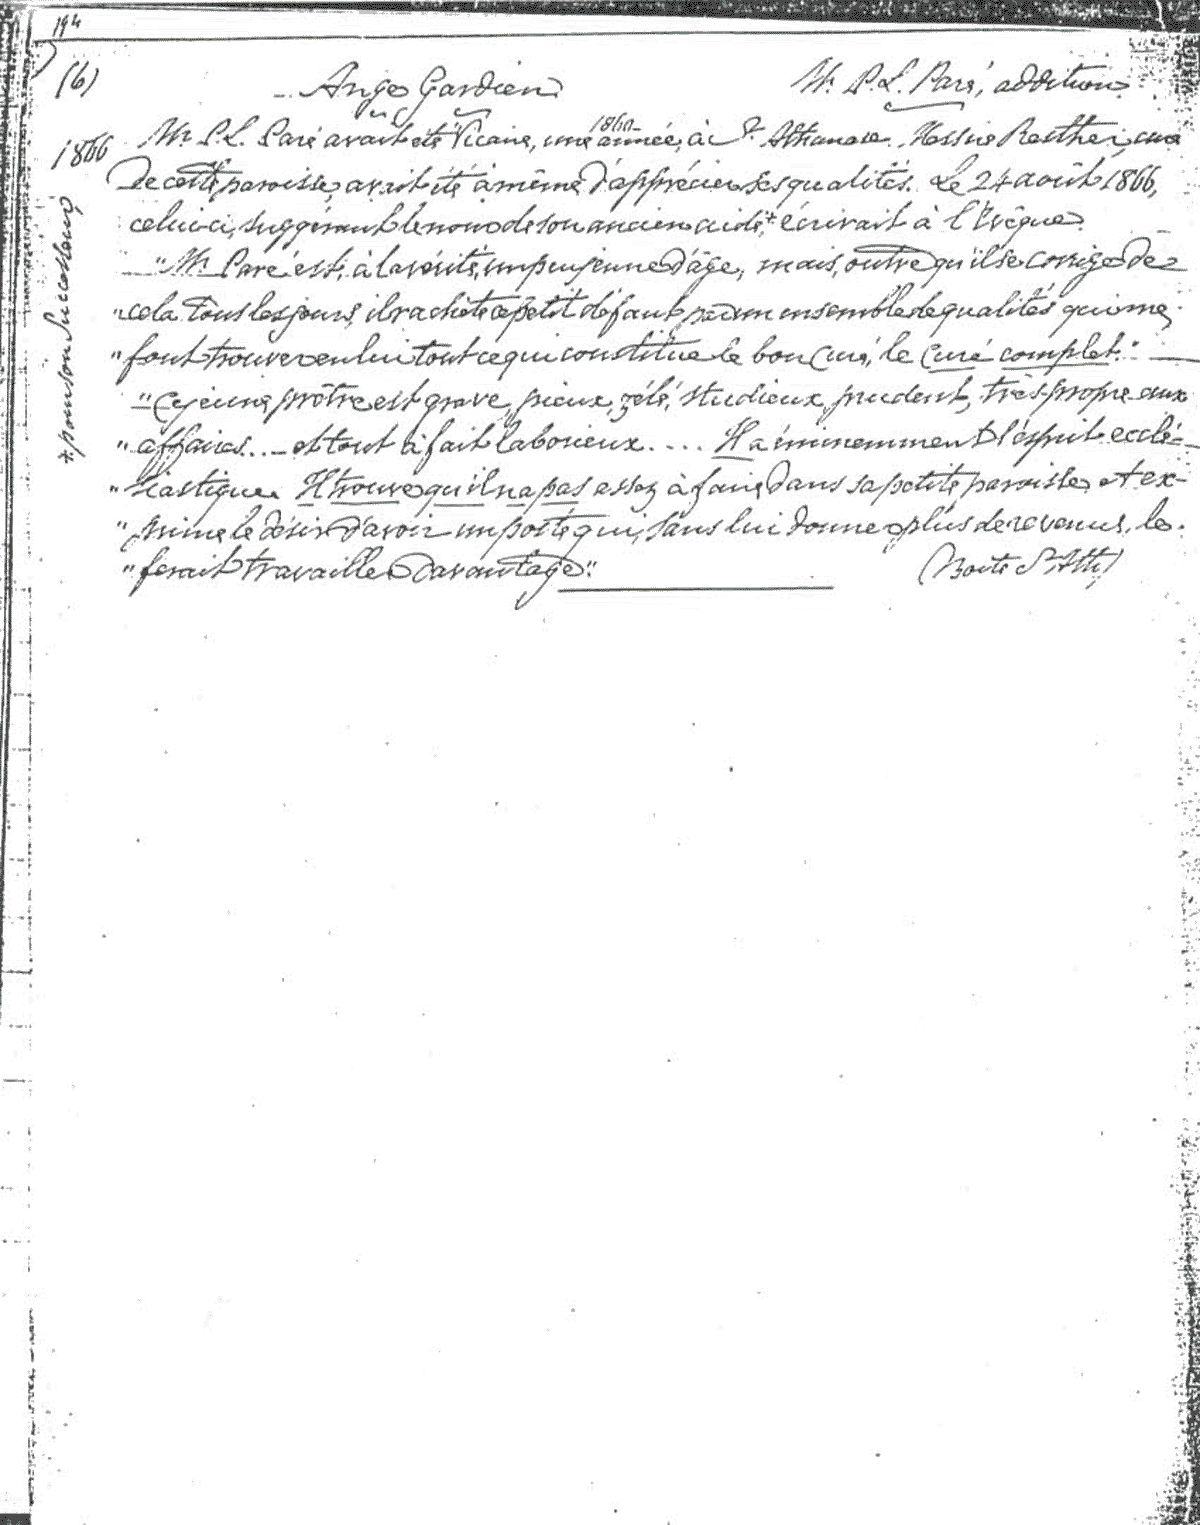 194
(6) Ange Gardien Mr. P. L. Paré, addition
1860
1866 Mr P. L. Paré avait été Vicaire, une année, à St Athanase. Messire Resther, curé
de cette paroisse, avait été à même d'apprécier ses qualités. Le 24 août 1866,
celui-ci, suggérant le nom de son ancien aide,* écrivait à l'Evêque
"Mr Paré est, à la vérité, un peu jeune d'âge, mais, outre qu'il se corrige de
"cela tous les jours, il rachète ce petit défaut par un ensemble de qualités qui me
"font trouver en lui tout ce qui constitue le bon Curé, le curé complet."
"Ce jeune prêtre est grave, pieux, zélé, studieux, prudent, très-propre aux
"affaires... et tout à fait laborieux.... Il a éminemment l'esprit ecclé-
"siastique. Il trouve qu'il n'a pas assez à faire dans sa petite paroisse et ex-
"prime le désir d'avoir un poste qui, sans lui donner plus de revenus, le
"ferait travailler davantage". (Boite St Ath)
* pour son Successeur